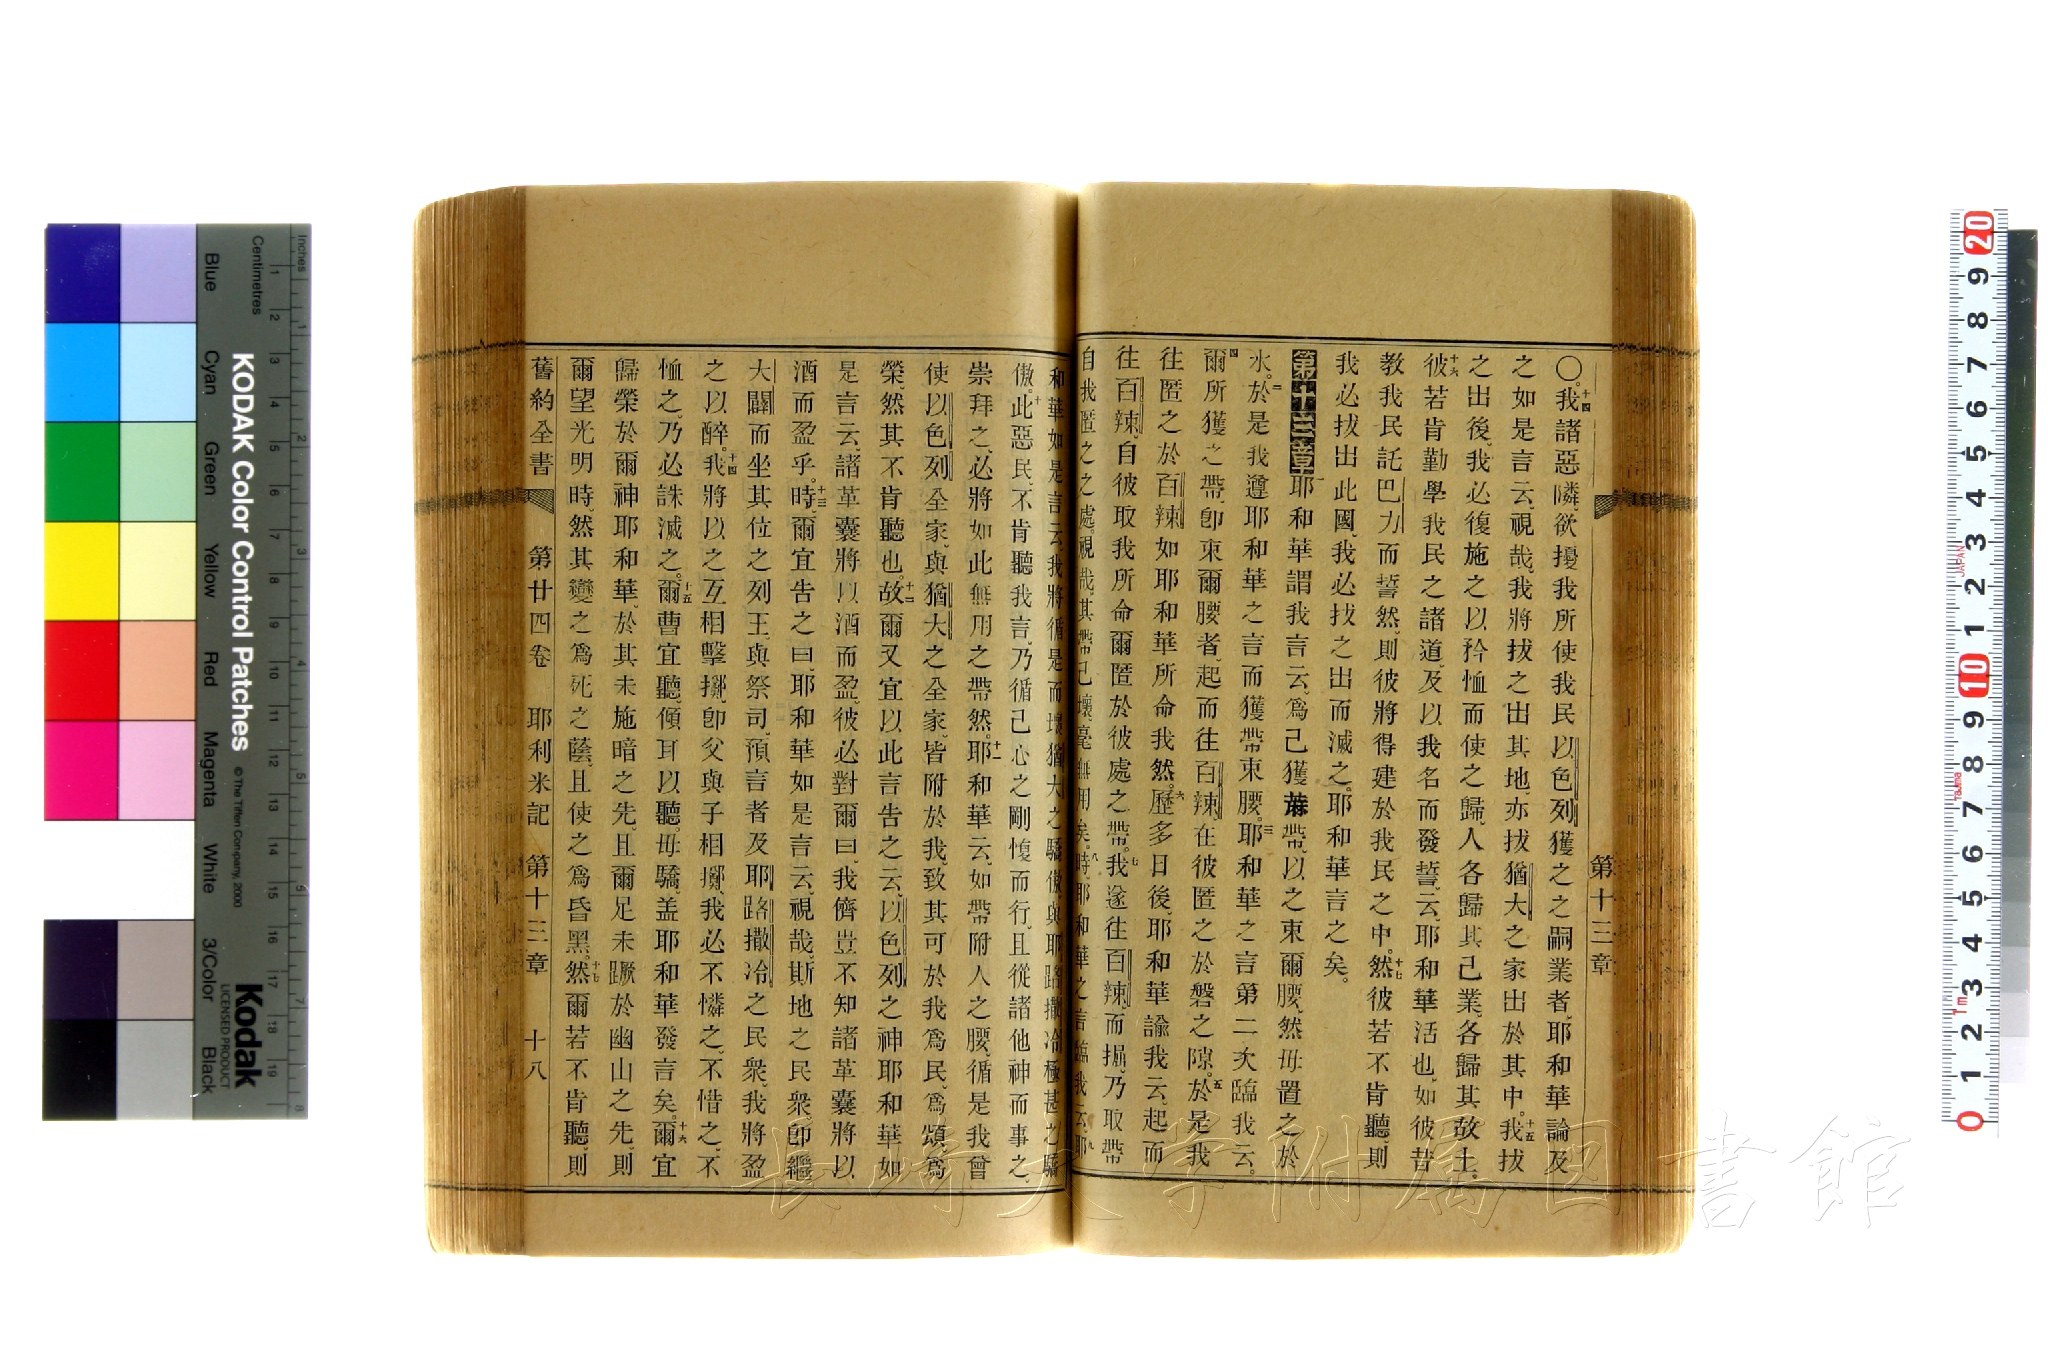 第十三章
〇十四我諸惡隣、欲擾我所使我民以色列獲之之嗣業者、耶和華論及
之如是言云、視哉、我將拔之出其地、亦拔猶大之家出於其中。十五我拔
之出後、我必復施之以矜恤而使之歸、人各歸其己業、各歸其故土。
十六彼若肯勤學我民之諸道、及以我名而發誓、云耶和華活也、如彼昔
教我民託巴力而誓然、則彼將得建於我民之中。十七然彼若不肯聽、則
我必拔出此國、我必拔之出而滅之、耶和華言之矣。
第十三章一耶和華謂我言云、爲己獲蔴帶、以之束爾腰、然毋置之於
水。二於是我遵耶和華之言而獲帶束腰。三耶和華之言第二次臨我云。
四爾所獲之帶、卽束爾腰者、起而往百辣、在彼匿之於磐之隙。五於是我
往匿之於百辣、如耶和華所命我然。六歷多日後、耶和華諭我云、起而
往百辣、自彼取我所命爾匿於彼處之帶。七我遂往百辣、而掘、乃取帶
自我匿之之處。視哉、其帶已壞、毫無用矣。八時、耶和華之言臨我云、九耶
和華如是言云、我將循是而壞猶大之驕傲、與耶路撒冷極甚之驕
傲。十此惡民、不肯聽我言、乃循己心之剛愎而行、且從諸他神而事之、
崇拜之、必將如此無用之帶然。十一耶和華云、如帶附人之腰、循是我曾
使以色列全家、與猶大之全家、皆附於我、致其可於我爲民、爲頌、爲
榮、然其不肯聽也。十二故爾又宜以此言告之云、以色列之神耶和華、如
是言云、諸革囊將以酒而盈、彼必對爾曰、我儕豈不知諸革囊將以
酒而盈乎。十三時、爾宜告之曰、耶和華如是言云、視哉、斯地之民衆、卽繼
大闢而坐其位之列王、與祭司、預言者及耶路撒冷之民衆、我將盈
之以醉。十四我將以之互相擊擲、卽父與子相擲、我必不憐之、不惜之、不
恤之、乃必誅滅之。十五爾曹宜聽、傾耳以聽、毋驕、盖耶和華發言矣。十六爾宜
歸榮於爾神耶和華、於其未施暗之先、且爾足未蹶於幽山之先、則
爾望光明時、然其變之爲死之蔭、且使之爲昏黑。十七然爾若不肯聽、則
舊約全書 第廿四卷 耶利米記 第十三章 十八
Inches
Centimetres
KODAK Color Control Patches
© The Tiffen Company, 2000
Kodak
LICENSED PRODUCT
Blue Cyan Green Yellow Red Magenta White 3/Color Black
長崎大学附属図書館